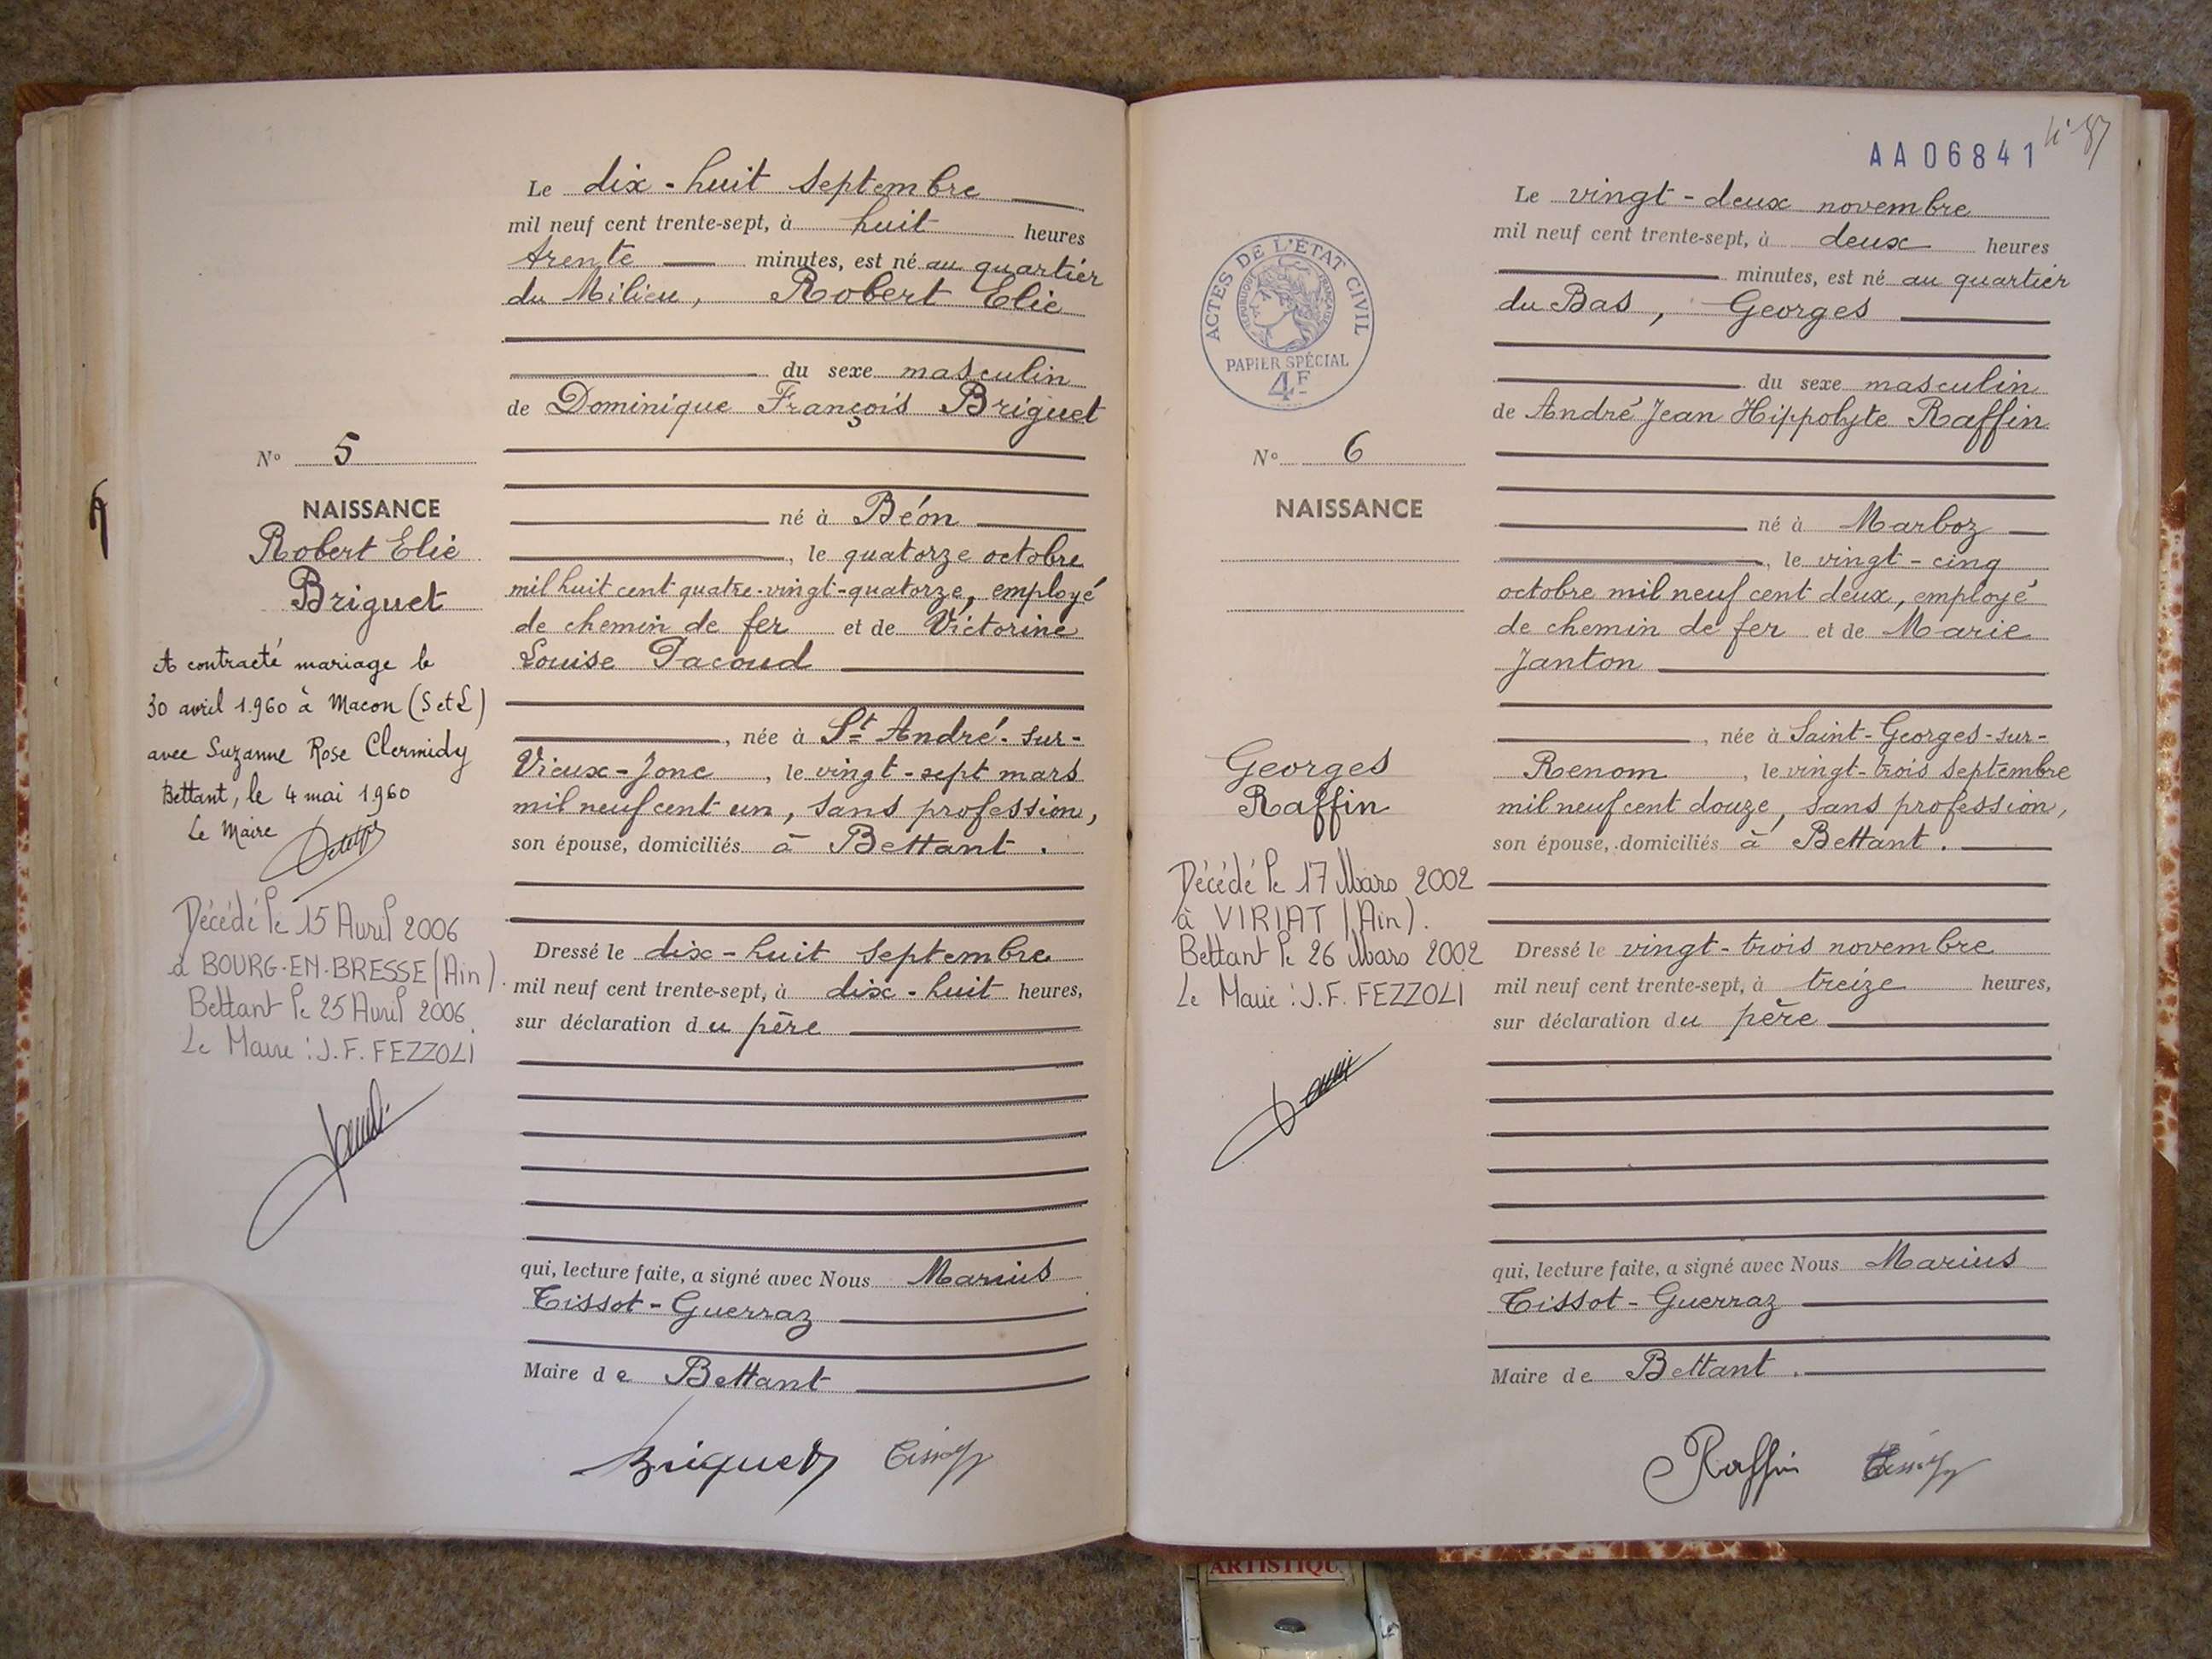 Le dix-huit septembre
mil neuf cent trente-sept, à huit heures
trente minutes, est né au quartier
du Milieu, Robert Elie
du sexe masculin
de Dominique François Briguet
né à Béon
, le quatorze octobre
mil huit cent quatre-vingt-quatorze, employé
de chemin de fer et de Victorine
Louise Pacoud
, née à St André-sur-
Vieux-Jonc, le vingt-sept mars
mil neuf cent un, sans profession,
son épouse, domiciliés à Bettant.
Dressé le dix-huit septembre
mil neuf cent trente-sept, à dix-huit heures,
sur déclaration du père
qui, lecture faite, a signé avec Nous Marius
Tissot-Guerraz
Maire de Bettant
Briguet
N° 5
NAISSANCE
Robert Elie
Briguet
A contracté mariage le
30 avril 1.960 à Macon (S et L)
avec Suzanne Rose Clermidy
Bettant, le 4 mai 1960
Le Maire
Décédé le 15 Avril 2006
à BOURG-EN-BRESSE (Ain).
Bettant le 25 Avril 2006
Le Maire : J.F. FEZZOLI
AA06841
Le vingt-deux novembre
mil neuf cent trente-sept, à deux heures
minutes, est né au quartier
du Bas, Georges
du sexe masculin
de André Jean Hippolyte Raffin
né à Marboz
, le vingt-cinq
octobre mil neuf cent deux, employé
de chemin de fer et de Marie
Janton
, née à Saint-Georges-sur-
Renom, le vingt-trois septembre
mil neuf cent douze, sans profession,
son épouse, domiciliés à Bettant.
Dressé le vingt-trois novembre
mil neuf cent trente-sept, à treize heures,
sur déclaration du père
qui, lecture faite, a signé avec Nous Marius
Tissot-Guerraz
Maire de Bettant.
Raffin
ACTES DE L'ÉTAT CIVIL
RÉPUBLIQUE FRANÇAISE
PAPIER SPÉCIAL
4F
N° 6
NAISSANCE
Georges
Raffin
Décédé le 17 Mars 2002
à VIRIAT (Ain).
Bettant le 26 Mars 2002
Le Maire : J.F. FEZZOLI
ARTISTIQU